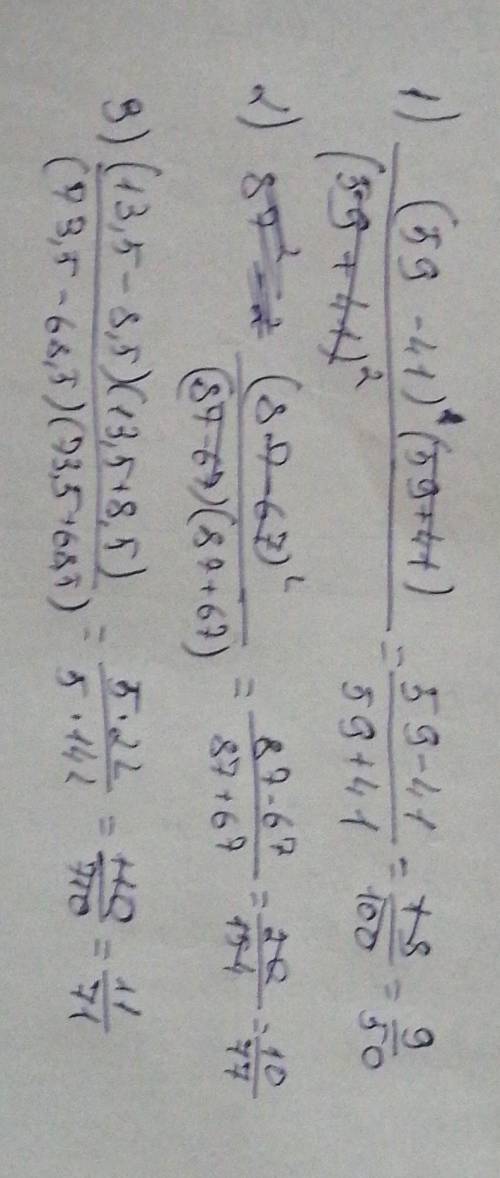 1) (59 - 41)(59+41) / (59+41)² = 59-41 / 59+41 = 18/100 = 9/50
2) (87-67)² / (87-67)(87+67) = 87-67 / 87+67 = 20/154 = 10/77
3) (13,5-8,5)(13,5+8,5) / (73,5-68,5)(73,5+68,5) = 5·22 / 5·142 = 110/710 = 11/71